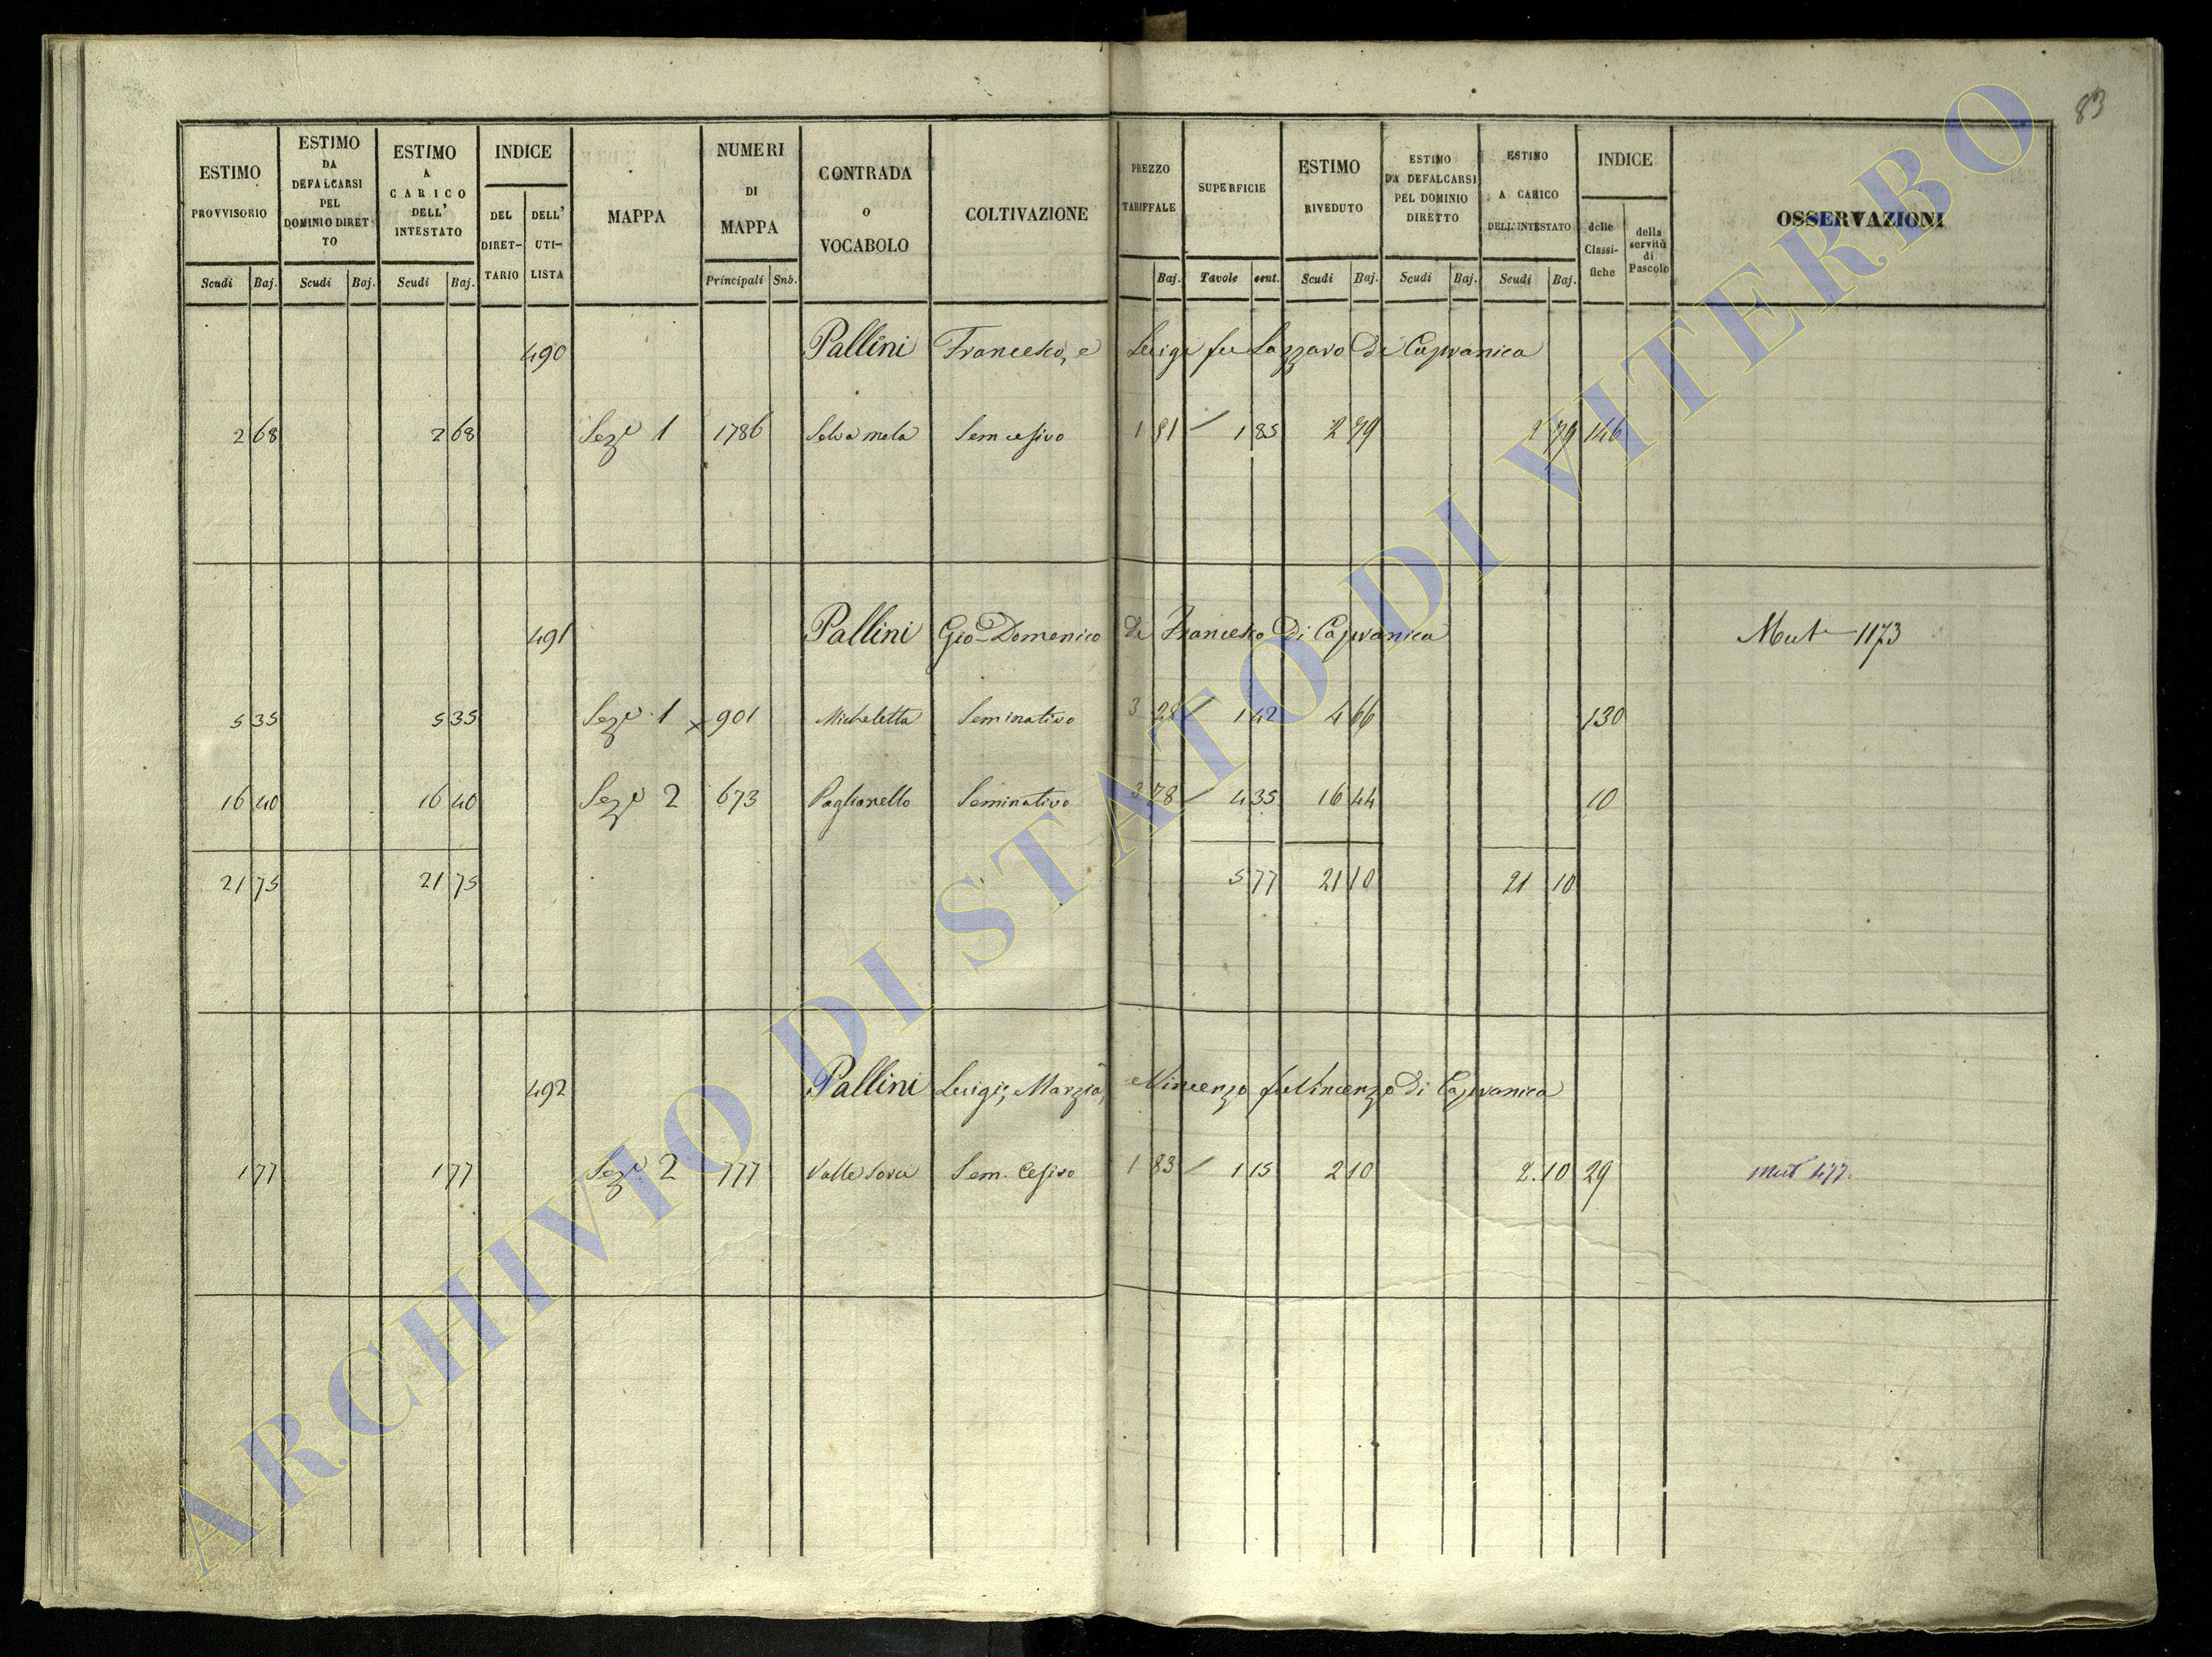 83
ESTIMO PROVVISORIO Scudi Baj.
ESTIMO DA DEFALCARSI PEL DOMINIO DIRETTO Scudi Baj.
ESTIMO A CARICO DELL' INTESTATO Scudi Baj.
INDICE DEL DIRETTARIO DELL' UTILISTA
MAPPA
NUMERI DI MAPPA Principali Snb.
CONTRADA O VOCABOLO
COLTIVAZIONE
PREZZO TARIFFALE Baj.
SUPERFICIE Tavole cent.
ESTIMO RIVEDUTO Scudi Baj.
ESTIMO DA DEFALCARSI PEL DOMINIO DIRETTO Scudi Baj.
ESTIMO A CARICO DELL'INTESTATO Scudi Baj.
INDICE delle Classifiche della servitù di Pascolo
OSSERVAZIONI
490 Pallini Francesco, e Luigi fu Lazzaro Di Capranica
2 68 2 68 Seze 1 1786 Selva mola Sem cesivo 1 81 1 85 2 79 2 79 146
491 Pallini Gio Domenico di Francesco Di Capranica Mut 1173
5 35 5 35 Seze 1 x 901 Micheletta Seminativo 3 28 1 42 4 66 130
16 40 16 40 Seze 2 673 Paglianello Seminativo 3 78 4 35 16 44 10
21 75 21 75 5 77 21 10 21 10
492 Pallini Luigi, Marzia, e Vincenzo fu Vincenzo Di Capranica
1 77 1 77 Seze 2 777 Valle Sorci Sem. Cesivo 1 83 1 15 2 10 2.10 29 Mut 477.
ARCHIVIO DI STATO DI VITERBO